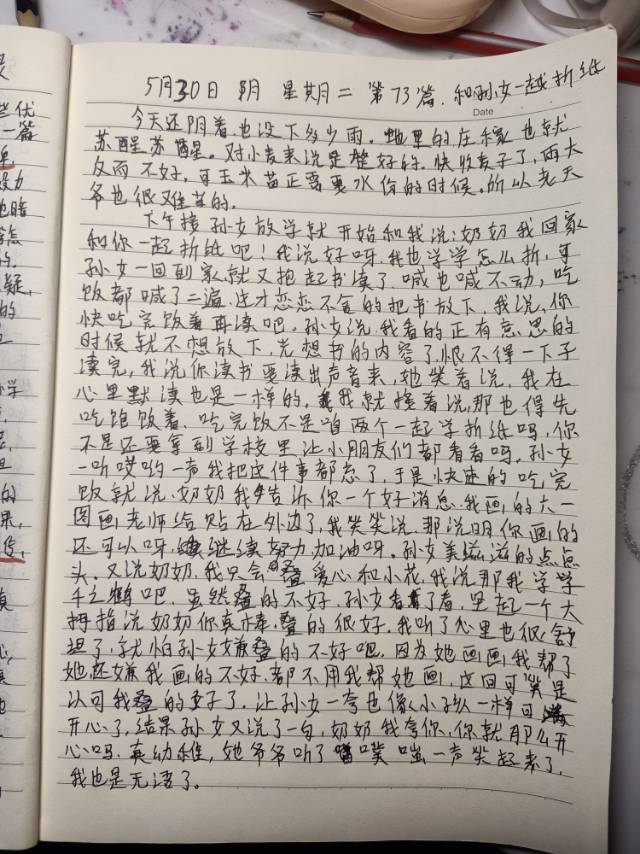 5月30日 阴 星期二 第73篇.和孙女一起折纸
Date
今天还阴着.也没下多少雨。地里的庄稼也就
苏醒苏醒。对小麦来说是挺好的.快收麦子了,雨大
反而不好,可玉米苗正需要水份的时候.所以老天
爷也很难当的.
下午接孙女放学就开始和我说:奶奶我回家
和你一起折纸吧!我说好呀.我也学学怎么折,可
孙女一回到家就又抱起书读了.喊也喊不动,吃
饭都喊了二遍.这才恋恋不舍的把书放下.我说.你
快吃完饭着再读吧.孙女说.我看的正有意思的
时候就不想放下,光想书的内容了.恨不得一下子
读完,我说你读书要读出声音来,她笑着说.我在
心里默读也是一样的.我就接着说,那也得先
吃饱饭着.吃完饭不是咱两个一起学折纸吗,你
不是还要拿到学校里让小朋友们都看看吗.孙女
一听哎哟一声我把这件事都忘了.于是快速的吃完
饭就说.奶奶我告诉你一个好消息.我画的六一
图画老师给贴在外边了,我笑笑说.那说明你画的
还可以呀.继续努力加油呀.孙女美滋滋的点点
头.又说奶奶.我只会叠爱心和小花.我说那我学学
千之鹤吧.虽然叠的不好.孙女看了看.竖起一个大
拇指说奶奶你真棒.叠的很好.我听了心里也很舒
坦了.就怕孙女嫌叠的不好呢.因为她画画我帮了
她还嫌我画的不好.都不用我帮她画.这回可算是
认可我叠的好了.让孙女一夸也像小孩一样可
开心了,结果孙女又说了一句.奶奶我夸你.你就那么开
心吗.真幼稚,她爷爷听了噗嗤一声笑起来了.
我也是无语了。